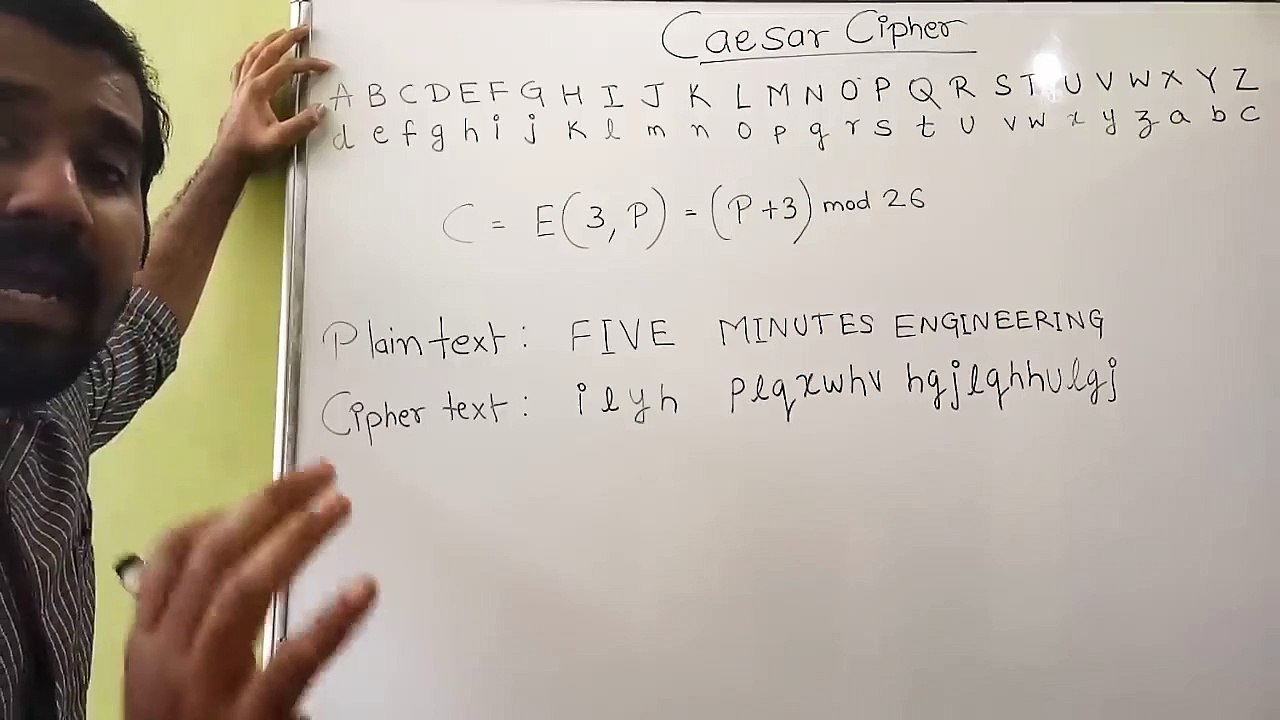 Caesar Cipher
A B C D E F G H I J K L M N O P Q R S T U V W X Y Z
d e f g h i j k l m n o p q r s t u v w x y z a b c
C = E(3, P) = (P+3) mod 26
Plain text : FIVE MINUTES ENGINEERING
Cipher text : ilyh plqxwhv hgjlqhhulgj